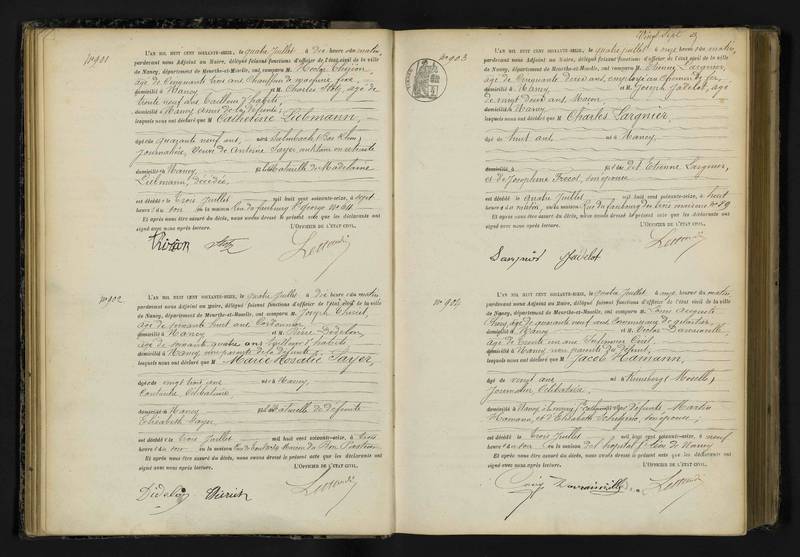 N° 901
L'AN MIL HUIT CENT SOIXANTE-SEIZE, le quatre Juillet à dix heures du matin,
pardevant nous Adjoint au Maire, délégué faisant fonctions d'officier de l'état civil de la ville
de Nancy, département de Meurthe-et-Moselle, ont comparu M.
âgé de Cinquante trois ans Chauffeur de machine fixe,
domicilié à Nancy et M. Charles Stotz, âgé de
trente neuf ans tailleur d'habits,
domicilié à Nancy amis de la défunte,
lesquels nous ont déclaré que Catherine Liebmann,
âgée de quarante neuf ans, née à Dalembach (Bas Rhin),
Journalière, Veuve de Antoine Sayer, en retraite
domiciliée à Nancy fille naturelle de Madeleine
Liebmann, décédée,
est décédée le trois Juillet mil huit cent soixante-seize, à sept
heures du soir en la maison rue du faubourg St George N° 64
Et après nous être assuré du décès, nous avons dressé le présent acte que les déclarants ont
signé avec nous après lecture. L'OFFICIER DE L'ÉTAT CIVIL,
N° 902
L'AN MIL HUIT CENT SOIXANTE-SEIZE, le quatre Juillet à dix heures du matin,
pardevant nous Adjoint au Maire, délégué faisant fonctions d'officier de l'état civil de la ville
de Nancy, département de Meurthe-et-Moselle, ont comparu M. Joseph
âgé de soixante huit ans Cordonnier
domicilié à Nancy et M. Pierre Didelon,
âgé de soixante quatre ans tailleur d'habits,
domicilié à Nancy non parents de la défunte
lesquels nous ont déclaré que Marie Rosalie Sayer,
âgée de vingt ans née à Nancy
Célibataire
domiciliée à Nancy fille naturelle de défunte
Elisabeth Sayer
est décédée le trois Juillet mil huit cent soixante-seize, à trois
heures du soir en la maison
Et après nous être assuré du décès, nous avons dressé le présent acte que les déclarants ont
signé avec nous après lecture. L'OFFICIER DE L'ÉTAT CIVIL,
Didelon
Vingt Sept
N° 903
L'AN MIL HUIT CENT SOIXANTE-SEIZE, le quatre Juillet à onze heures du matin,
pardevant nous Adjoint au Maire, délégué faisant fonctions d'officier de l'état civil de la ville
de Nancy, département de Meurthe-et-Moselle, ont comparu M. Etienne Largnier,
âgé de Cinquante deux ans, employé au Chemin de fer,
domicilié à Nancy et M. Joseph Jadelot, âgé
de vingt deux ans
domicilié à Nancy
lesquels nous ont déclaré que Charles Largnier
âgé de huit ans né à Nancy,
domicilié à fils dudit Etienne Largnier,
et de Josephine son épouse
est décédé le quatre Juillet mil huit cent soixante-seize, à huit
heures du matin, en la maison rue du faubourg des trois maisons N° 89
Et après nous être assuré du décès, nous avons dressé le présent acte que les déclarants ont
signé avec nous après lecture. L'OFFICIER DE L'ÉTAT CIVIL,
Largnier Jadelot
N° 904
L'AN MIL HUIT CENT SOIXANTE-SEIZE, le quatre Juillet à onze heures du matin,
pardevant nous Adjoint au Maire, délégué faisant fonctions d'officier de l'état civil de la ville
de Nancy, département de Meurthe-et-Moselle, ont comparu M. Louis Auguste
âgé de quarante neuf ans Commissaire de quartier,
domicilié à Nancy et M. Victor
âgé de trente un ans Infirmier Civil,
domicilié à Nancy non parents du défunt,
lesquels nous ont déclaré que Jacob Hamann,
âgé de vingt ans né à (Moselle)
Journalier Célibataire
domicilié à Nancy fils des défunts Martin
Hamann, et d'Elisabeth son épouse,
est décédé le trois Juillet mil huit cent soixante-seize, à neuf
heures du soir en la maison dite hopital St Léon de Nancy
Et après nous être assuré du décès, nous avons dressé le présent acte que les déclarants ont
signé avec nous après lecture. L'OFFICIER DE L'ÉTAT CIVIL,